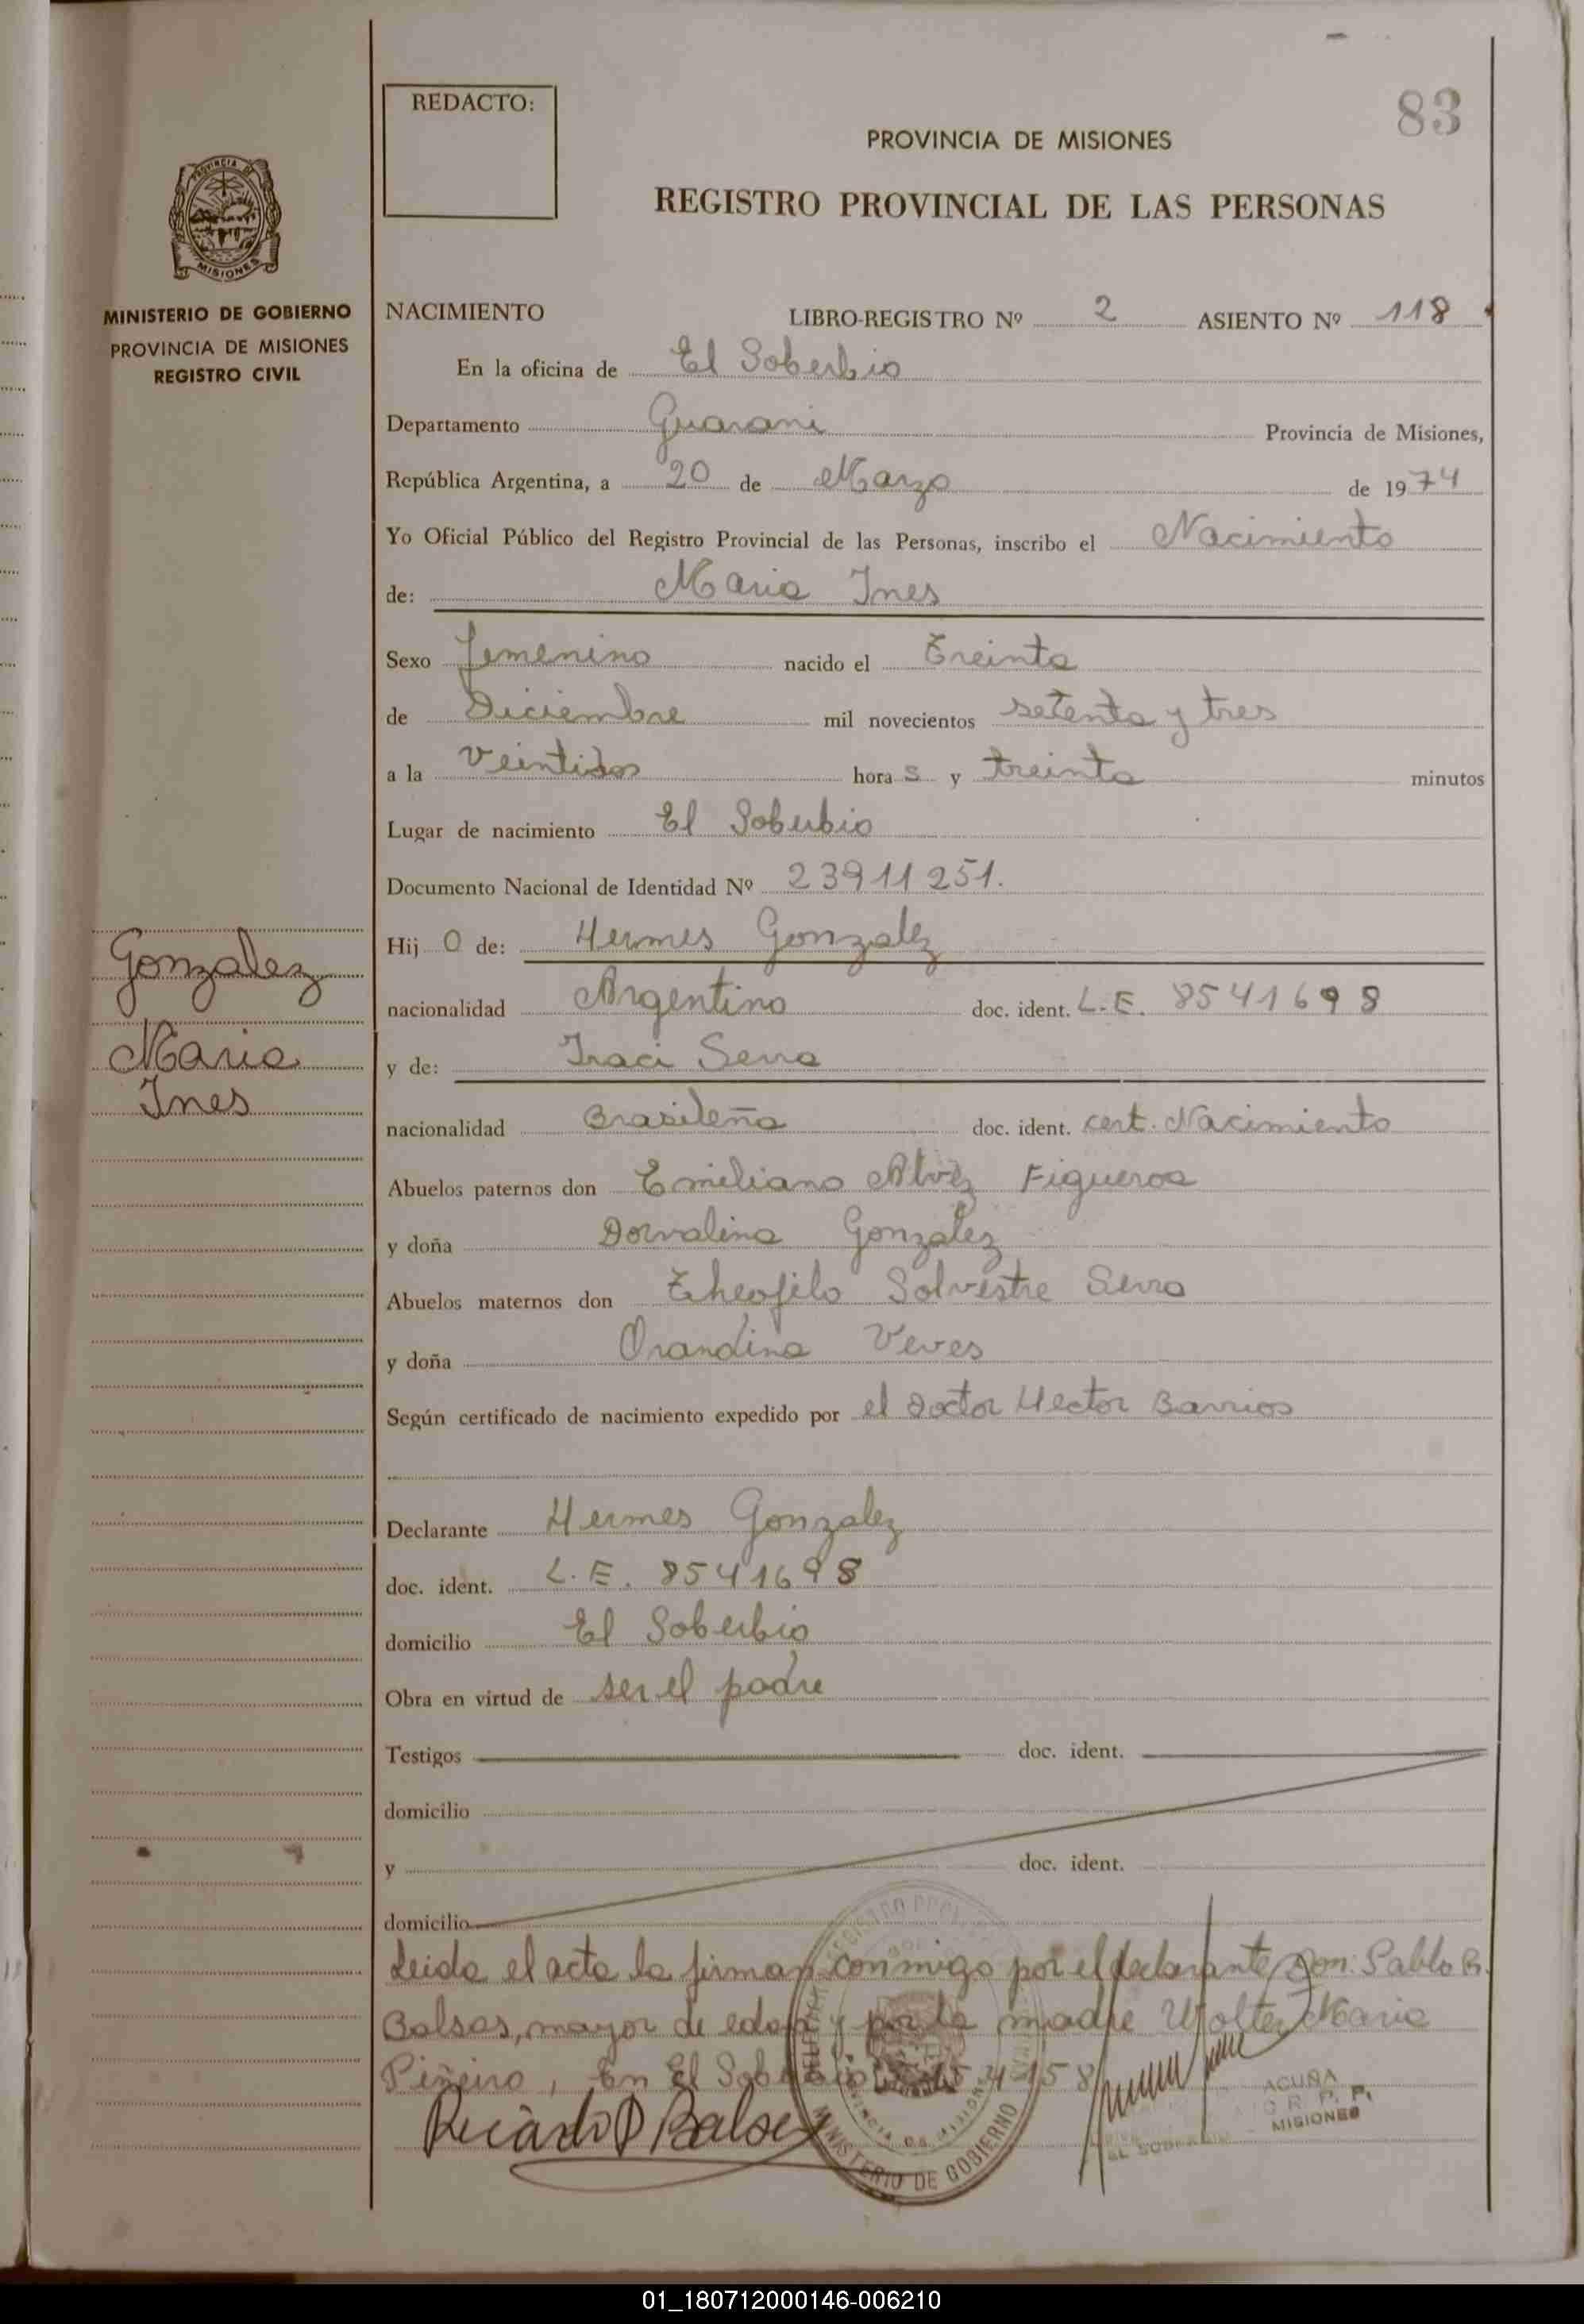 83
REDACTO:
PROVINCIA DE MISIONES
REGISTRO PROVINCIAL DE LAS PERSONAS
PROVINCIA DE
MISIONES
MINISTERIO DE GOBIERNO
PROVINCIA DE MISIONES
REGISTRO CIVIL
NACIMIENTO LIBRO-REGISTRO Nº 2 ASIENTO Nº 118
En la oficina de El Soberbio
Departamento Guarani Provincia de Misiones,
República Argentina, a 20 de Marzo de 1974
Yo Oficial Público del Registro Provincial de las Personas, inscribo el Nacimiento
de: Maria Ines
Sexo femenino nacido el Treinta
de Diciembre mil novecientos setenta y tres
a la veintidos hora s y treinta minutos
Lugar de nacimiento El Soberbio
Documento Nacional de Identidad Nº 23911251.
Hij o de: Hermes Gonzalez
nacionalidad Argentino doc. ident. L.E. 8541698
y de: Iraci Serra
nacionalidad Brasileña doc. ident. cert. Nacimiento
Abuelos paternos don Emiliano Alvez Figueroa
y doña Dorvalina Gonzalez
Abuelos maternos don Theofilo Solvestre Serra
y doña Orandina Veves
Según certificado de nacimiento expedido por el Doctor Hector Barrios
Declarante Hermes Gonzalez
doc. ident. L.E. 8541698
domicilio El Soberbio
Obra en virtud de ser el padre
Testigos doc. ident.
domicilio
y doc. ident.
domicilio
Leida el acta la firman conmigo por el declarante Don: Pablo R.
Balsas, mayor de edad y por la madre Wolter Maria
Piñeiro, En El Soberbio
Gonzalez
Maria
Ines
Ricardo Balse
MINISTERIO DE GOBIERNO
ACUÑA
MISIONES
01_180712000146-006210